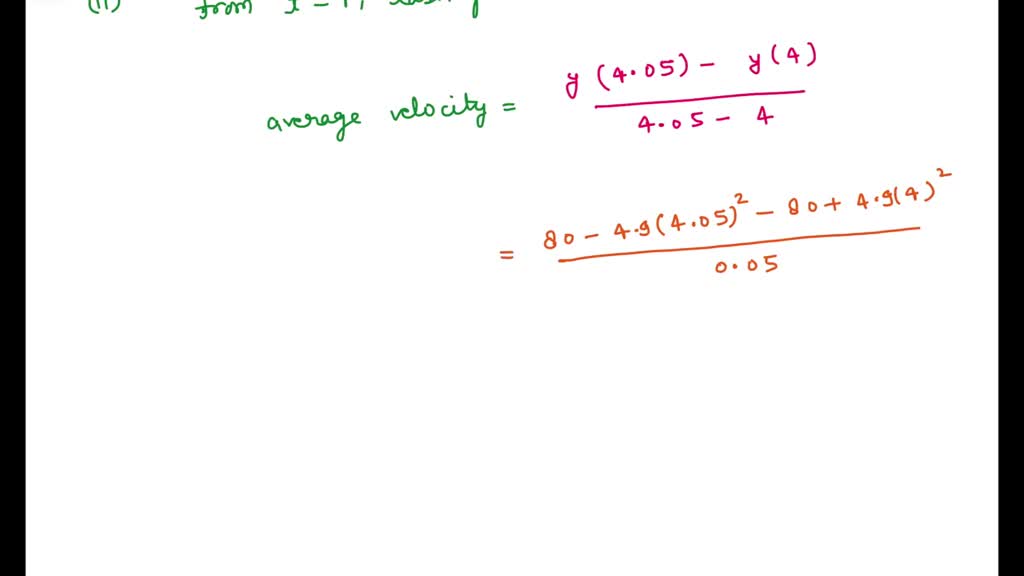 (ii) from
average velocity = y (4.05) - y (4)
4.05 - 4
= 80 - 4.9(4.05)² - 80 + 4.9(4)²
0.05